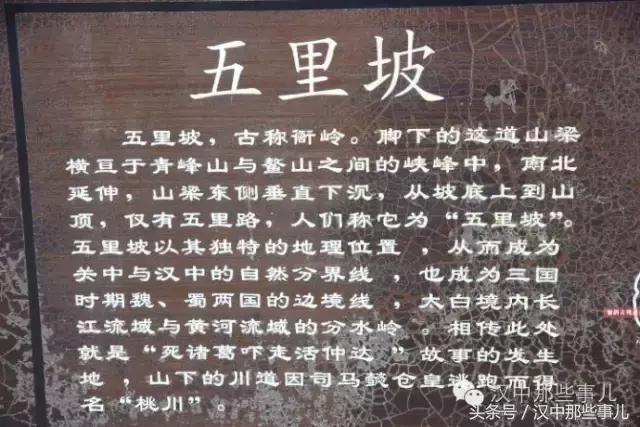 五里坡
五里坡，古称衙岭。脚下的这道山梁
横亘于青峰山与鳌山之间的峡峰中，南北
延伸，山梁东侧垂直下沉，从坡底上到山
顶，仅有五里路，人们称它为“五里坡”。
五里坡以其独特的地理位置，从而成为
关中与汉中的自然分界线，也成为三国
时期魏、蜀两国的边境线，太白境内长
江流域与黄河流域的分水岭。相传此处
就是“死诸葛吓走活仲达”故事的发生
地，山下的川道因司马懿仓皇逃跑而得
名“桃川”。
汉中那些事儿
头条号/汉中那些事儿